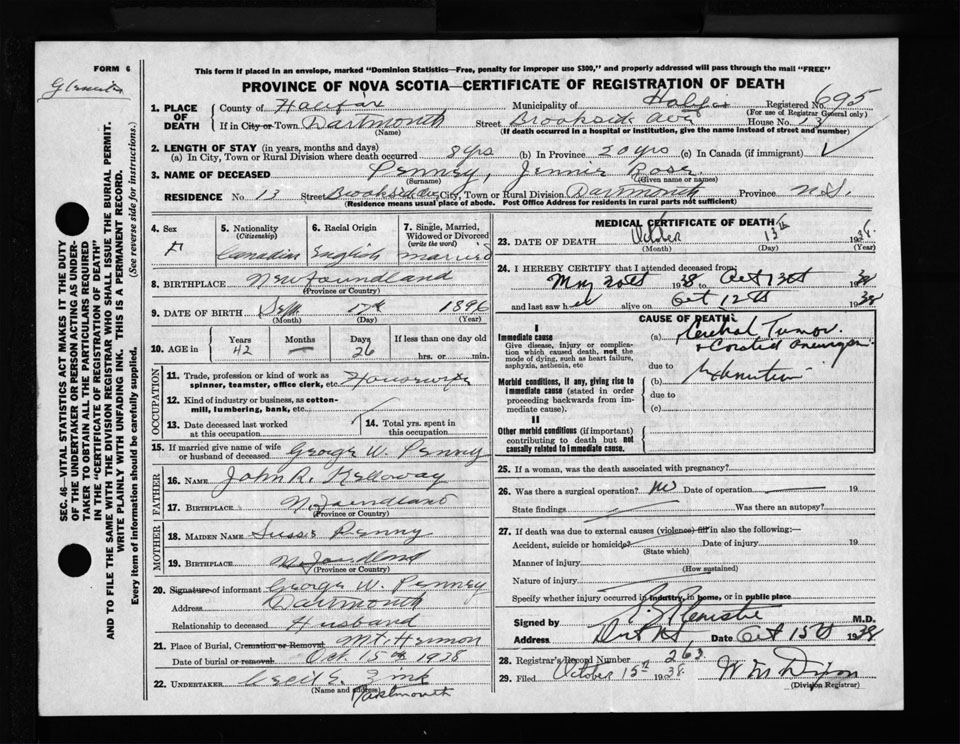 FORM 6
This form if placed in an envelope, marked "Dominion Statistics—Free, penalty for improper use $300," and properly addressed will pass through the mail "FREE"
PROVINCE OF NOVA SCOTIA—CERTIFICATE OF REGISTRATION OF DEATH
1. PLACE OF DEATH
County of Halifax Municipality of Halifax Registered No. 695
(For use of Registrar General only)
If in City or Town Dartmouth Street Brookside Ave House No. 13
(Name) (If death occurred in a hospital or institution, give the name instead of street and number)
2. LENGTH OF STAY (in years, months and days)
(a) In City, Town or Rural Division where death occurred 8 yrs (b) In Province 20 yrs (c) In Canada (if immigrant)
3. NAME OF DECEASED Penney, Jennie Rose
(Surname) (Given name or names)
RESIDENCE No. 13 Street Brookside Ave City, Town or Rural Division Dartmouth Province N.S.
(Residence means usual place of abode. Post Office Address for residents in rural parts not sufficient)
4. Sex F
5. Nationality (Citizenship) Canadian
6. Racial Origin English
7. Single, Married, Widowed or Divorced (write the word) married
8. BIRTHPLACE Newfoundland
(Province or Country)
9. DATE OF BIRTH Sept 17th 1896
(Month) (Day) (Year)
10. AGE in Years 42 Months — Days 26 If less than one day old hrs. or min.
OCCUPATION
11. Trade, profession or kind of work as spinner, teamster, office clerk, etc. Housewife
12. Kind of industry or business, as cotton-mill, lumbering, bank, etc.
13. Date deceased last worked at this occupation
14. Total yrs. spent in this occupation
15. If married give name of wife or husband of deceased George W. Penny
FATHER
16. NAME John R. Kelloway
17. BIRTHPLACE Nfoundland
(Province or Country)
MOTHER
18. MAIDEN NAME Susie Penny
19. BIRTHPLACE Nfoundland
(Province or Country)
20. Signature of informant George W. Penney
Address Dartmouth
Relationship to deceased Husband
21. Place of Burial, Cremation or Removal Mt. Hermon
Date of burial or removal Oct. 15th 1938
22. UNDERTAKER Cecil E. Zink
(Name and address) Dartmouth
MEDICAL CERTIFICATE OF DEATH
23. DATE OF DEATH October 13th 1938
(Month) (Day) (Year)
24. I HEREBY CERTIFY that I attended deceased from
May 20th 1938 to Oct 13th 1938
and last saw her alive on Oct 12th 1938
CAUSE OF DEATH
I
Immediate cause
Give disease, injury or complication which caused death, not the mode of dying, such as heart failure, asphyxia, asthenia, etc
(a) Tumor
due to
Morbid conditions, if any, giving rise to immediate cause (stated in order proceeding backwards from immediate cause).
(b)
due to
(c)
II
Other morbid conditions (if important) contributing to death but not causally related to immediate cause.
25. If a woman, was the death associated with pregnancy?
26. Was there a surgical operation? No Date of operation 19
State findings Was there an autopsy?
27. If death was due to external causes (violence) fill in also the following:—
Accident, suicide or homicide? Date of injury 19
(State which)
Manner of injury
(How sustained)
Nature of injury
Specify whether injury occurred in industry, in home, or in public place
Signed by M.D.
Address Date Oct 15th 1938
28. Registrar's Record Number 263
29. Filed October 15th 1938
(Division Registrar)
SEC. 46—VITAL STATISTICS ACT MAKES IT THE DUTY OF THE UNDERTAKER OR PERSON ACTING AS UNDERTAKER TO OBTAIN ALL THE PARTICULARS REQUIRED IN THE "CERTIFICATE OF REGISTRATION OF DEATH" AND TO FILE THE SAME WITH THE DIVISION REGISTRAR WHO SHALL ISSUE THE BURIAL PERMIT.
WRITE PLAINLY WITH UNFADING INK. THIS IS A PERMANENT RECORD.
Every item of information should be carefully supplied. (See reverse side for instructions.)